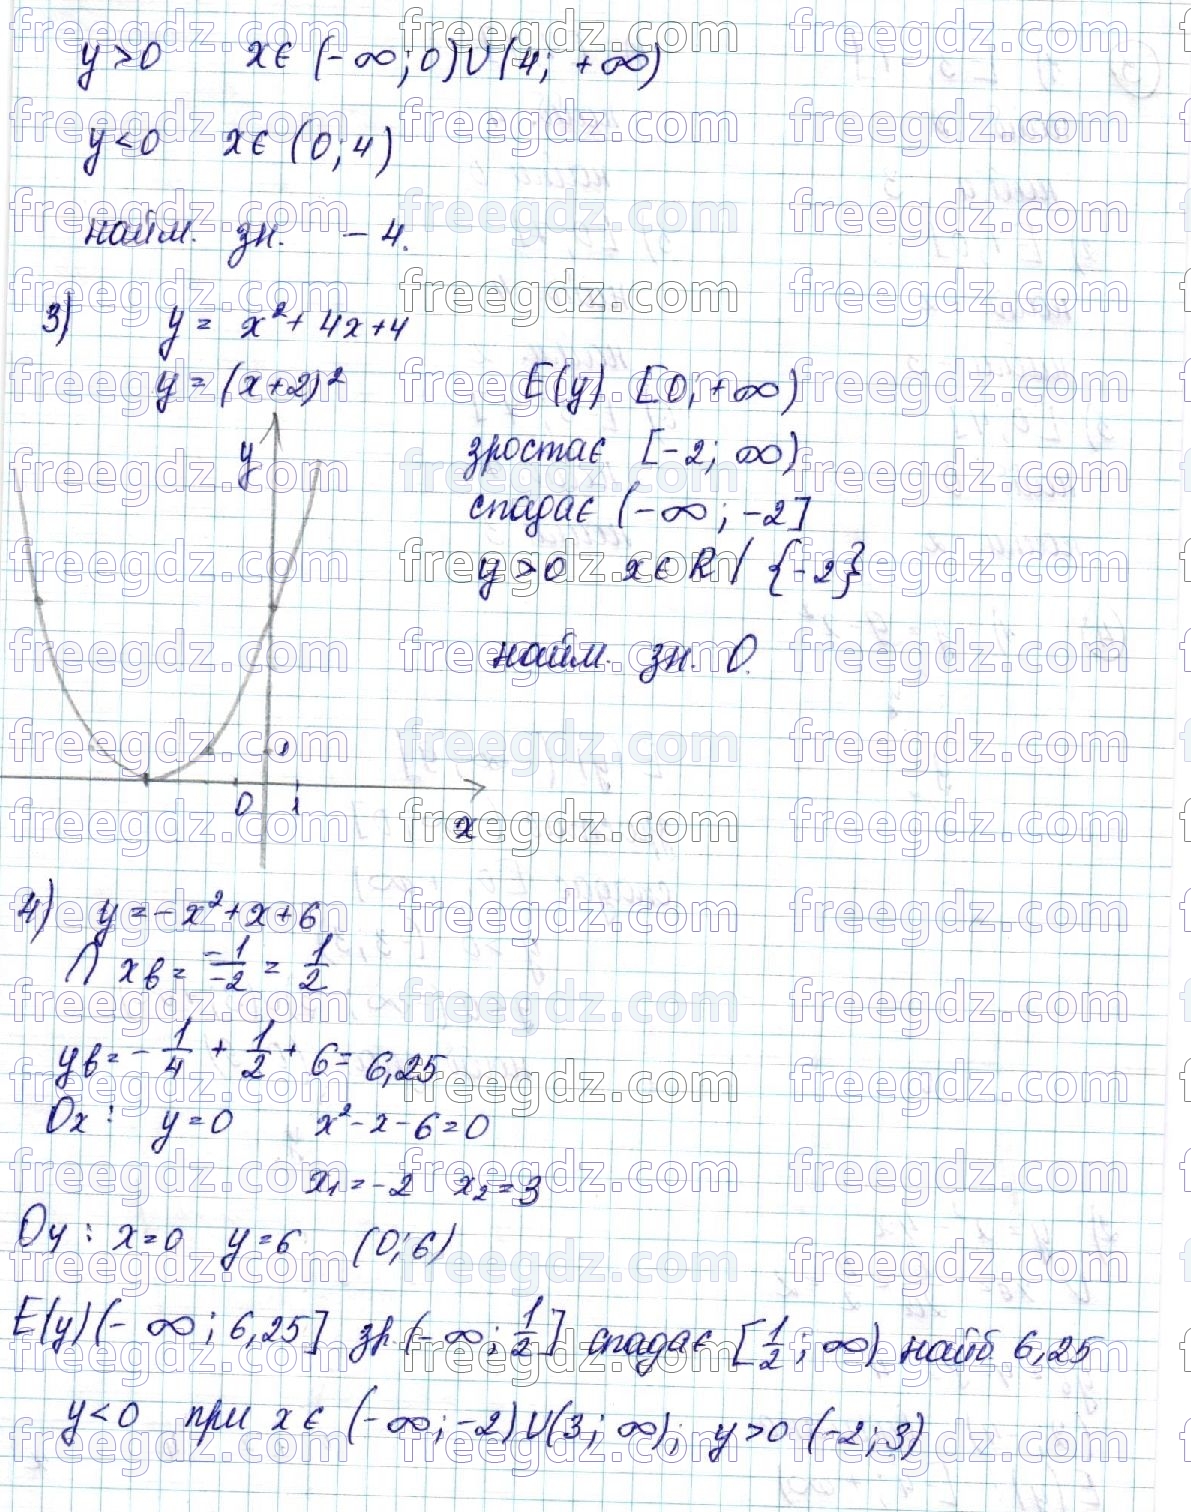 y>0 x∈(-∞;0)∪(4;+∞)
y<0 x∈(0;4)
найм. зн. -4.
3) y = x²+4x+4
y=(x+2)²
E(y) [0;+∞)
зростає [-2; ∞)
спадає (-∞; -2]
y>0 x∈R / {-2}
найм. зн. 0.
y
1
0 1
x
4) y=-x²+x+6
∩ xв = -1/-2 = 1/2
yв = -1/4 + 1/2 + 6 = 6,25
Ox: y=0 x²-x-6=0
x₁=-2 x₂=3
Oy: x=0 y=6 (0;6)
E(y)(-∞; 6,25] зр.(-∞; 1/2] спадає [1/2; ∞) найб 6,25
y<0 при x∈(-∞;-2)∪(3;∞); y>0 (-2;3)
freegdz.com